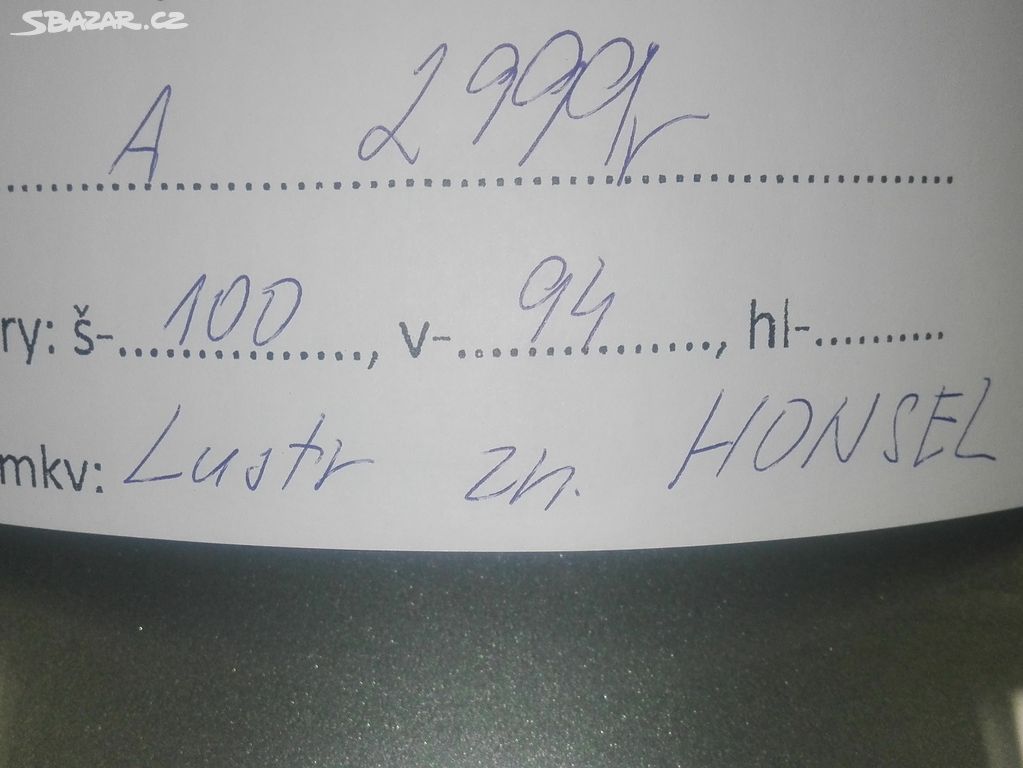 SBAZAR.CZ
A 2999,-
ry: š-100, v-94, hl-
mkv: Lustr zn. HONSEL